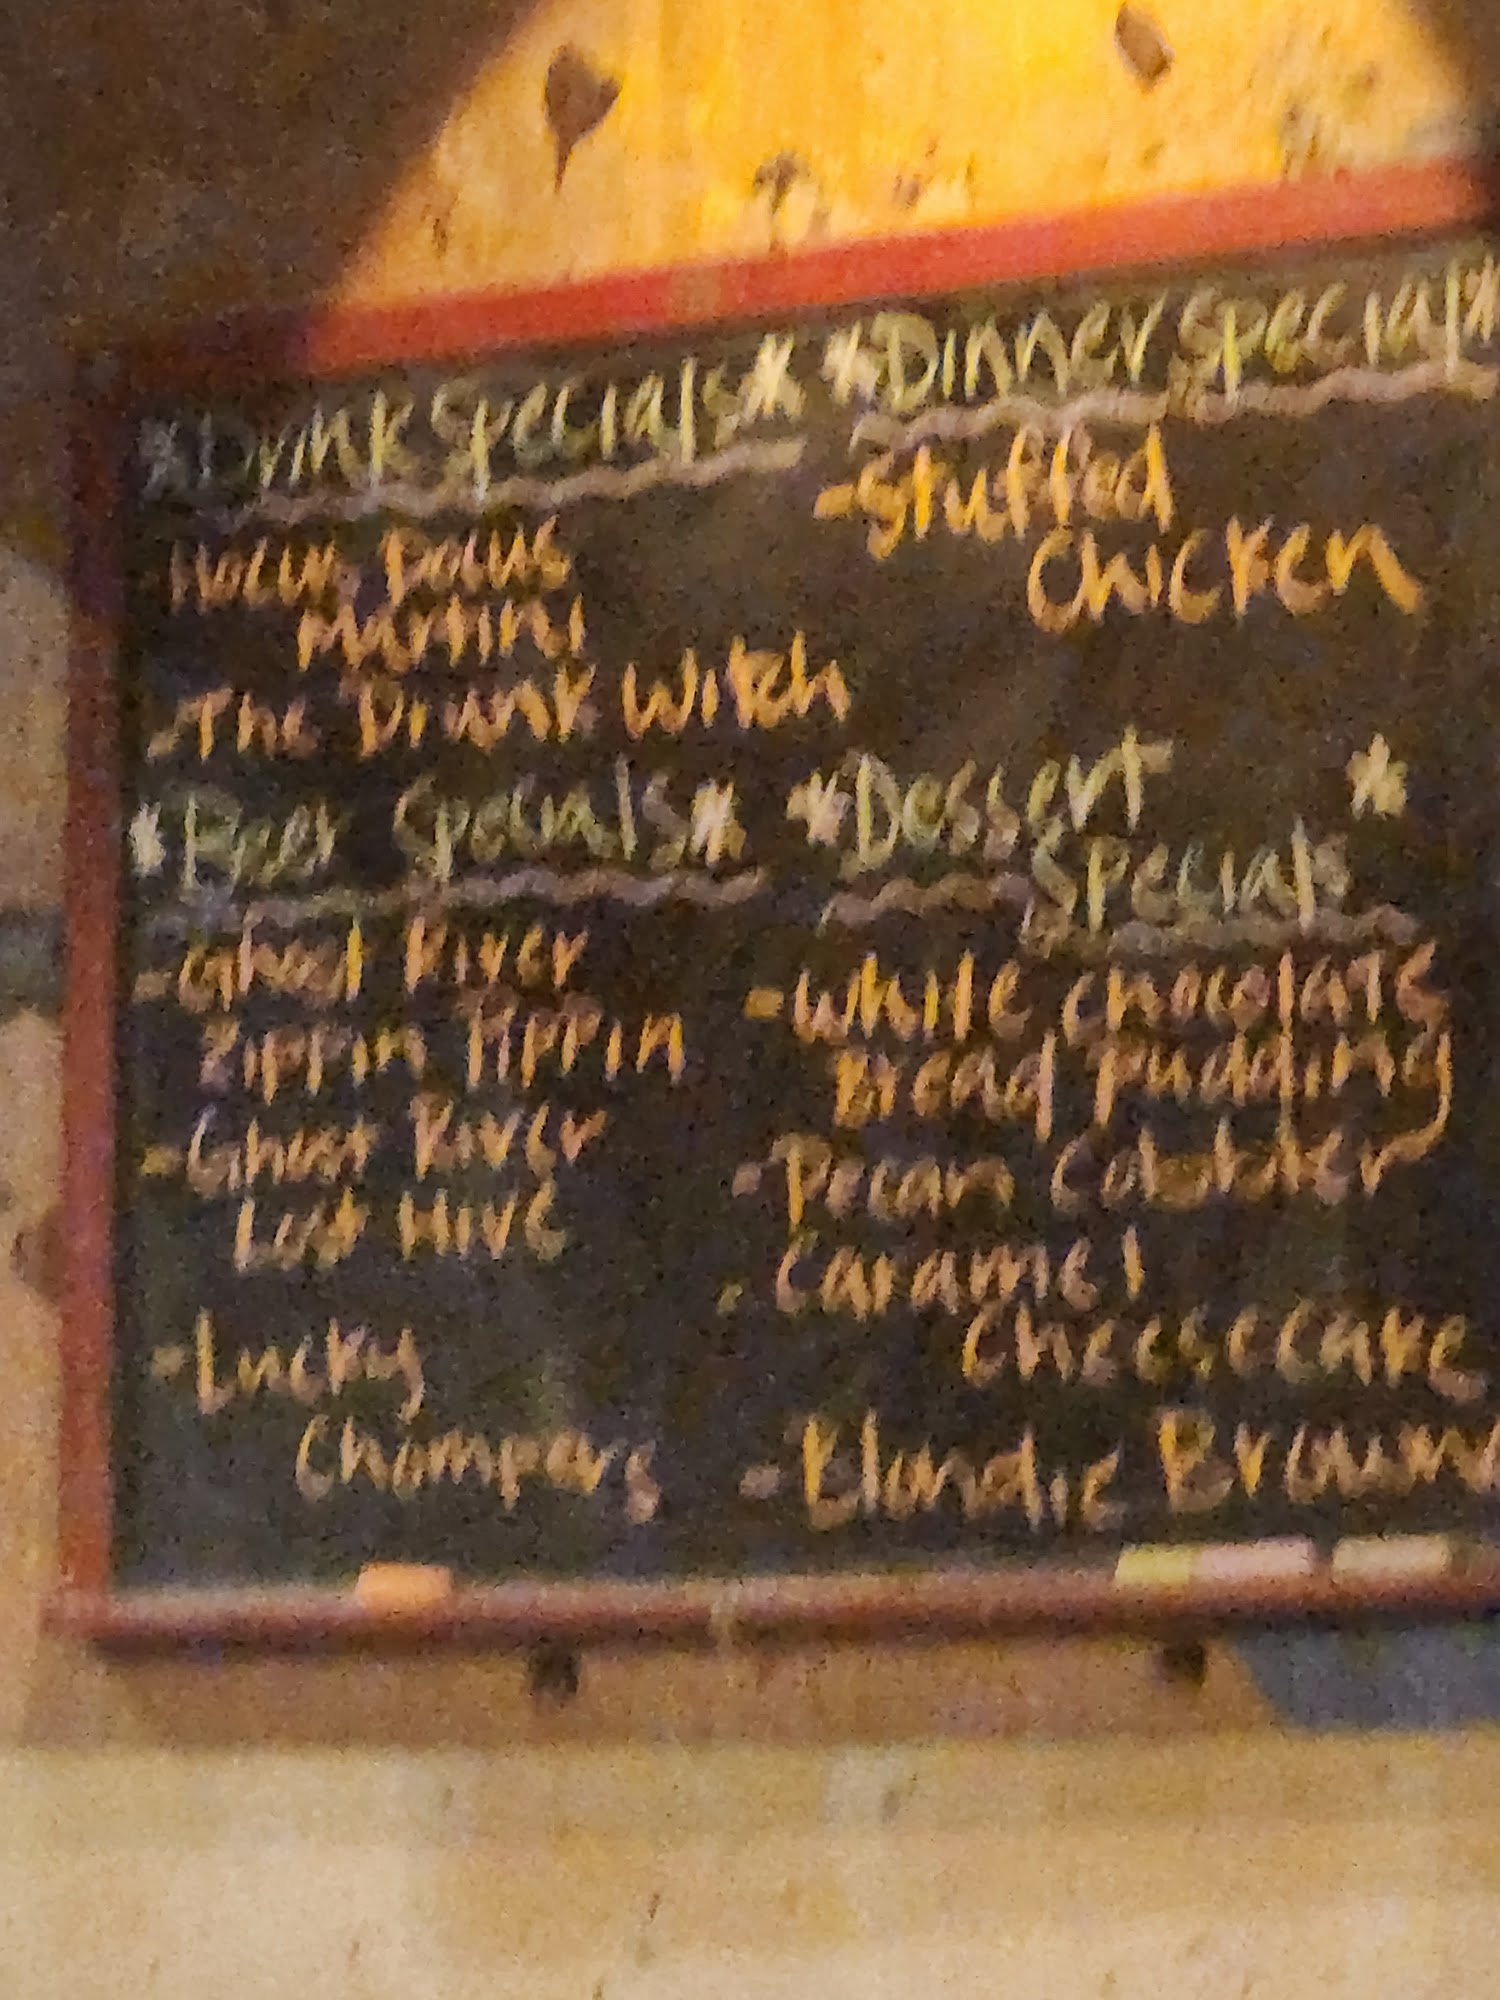 *Drink Specials*
Hocus Pocus
Martini
-The Drunk Witch
*Beer Specials*
-Ghost River
Zippin Pippin
-Ghost River
Lost Hive
-Lucky
Chompers
*Dinner Special*
-Stuffed
Chicken
*Dessert *
Specials
-White chocolate
Bread pudding
-Pecan Cobbler
-Caramel
Cheesecake
-Blondie